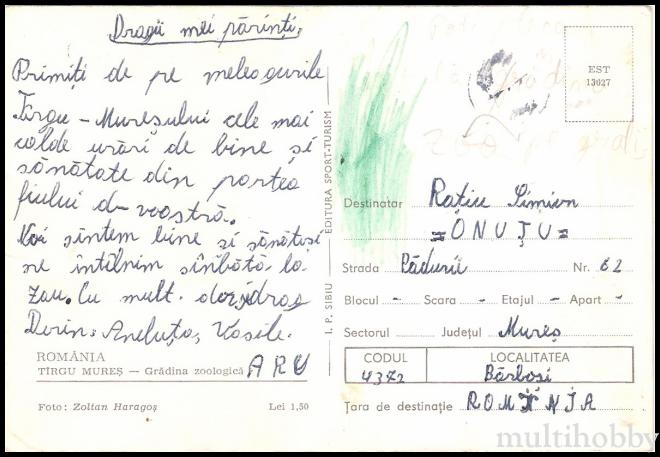 Dragii mei părinți,
Primiți de pe meleagurile
Tîrgu-Mureșului cele mai
calde urări de bine și
sănătate din partea
fiului d-voastră.
Noi sîntem bine și sănătoși
ne întîlnim sîmbătă la
Zau. Cu mult dor și drag
Dorin, Aneluța, Vasile.
ROMÂNIA
TÎRGU MUREȘ — Grădina zoologică
ARU
Foto: Zoltan Haragoș
Lei 1,50
I. P. SIBIU
EDITURA SPORT-TURISM
EST
13027
Destinatar Rațiu Simion
=ONUȚU=
Strada Pădurii Nr. 62
Blocul - Scara - Etajul - Apart -
Sectorul Județul Mureș
CODUL
4372
LOCALITATEA
Bărboși
Țara de destinație ROMÂNIA
multihobby